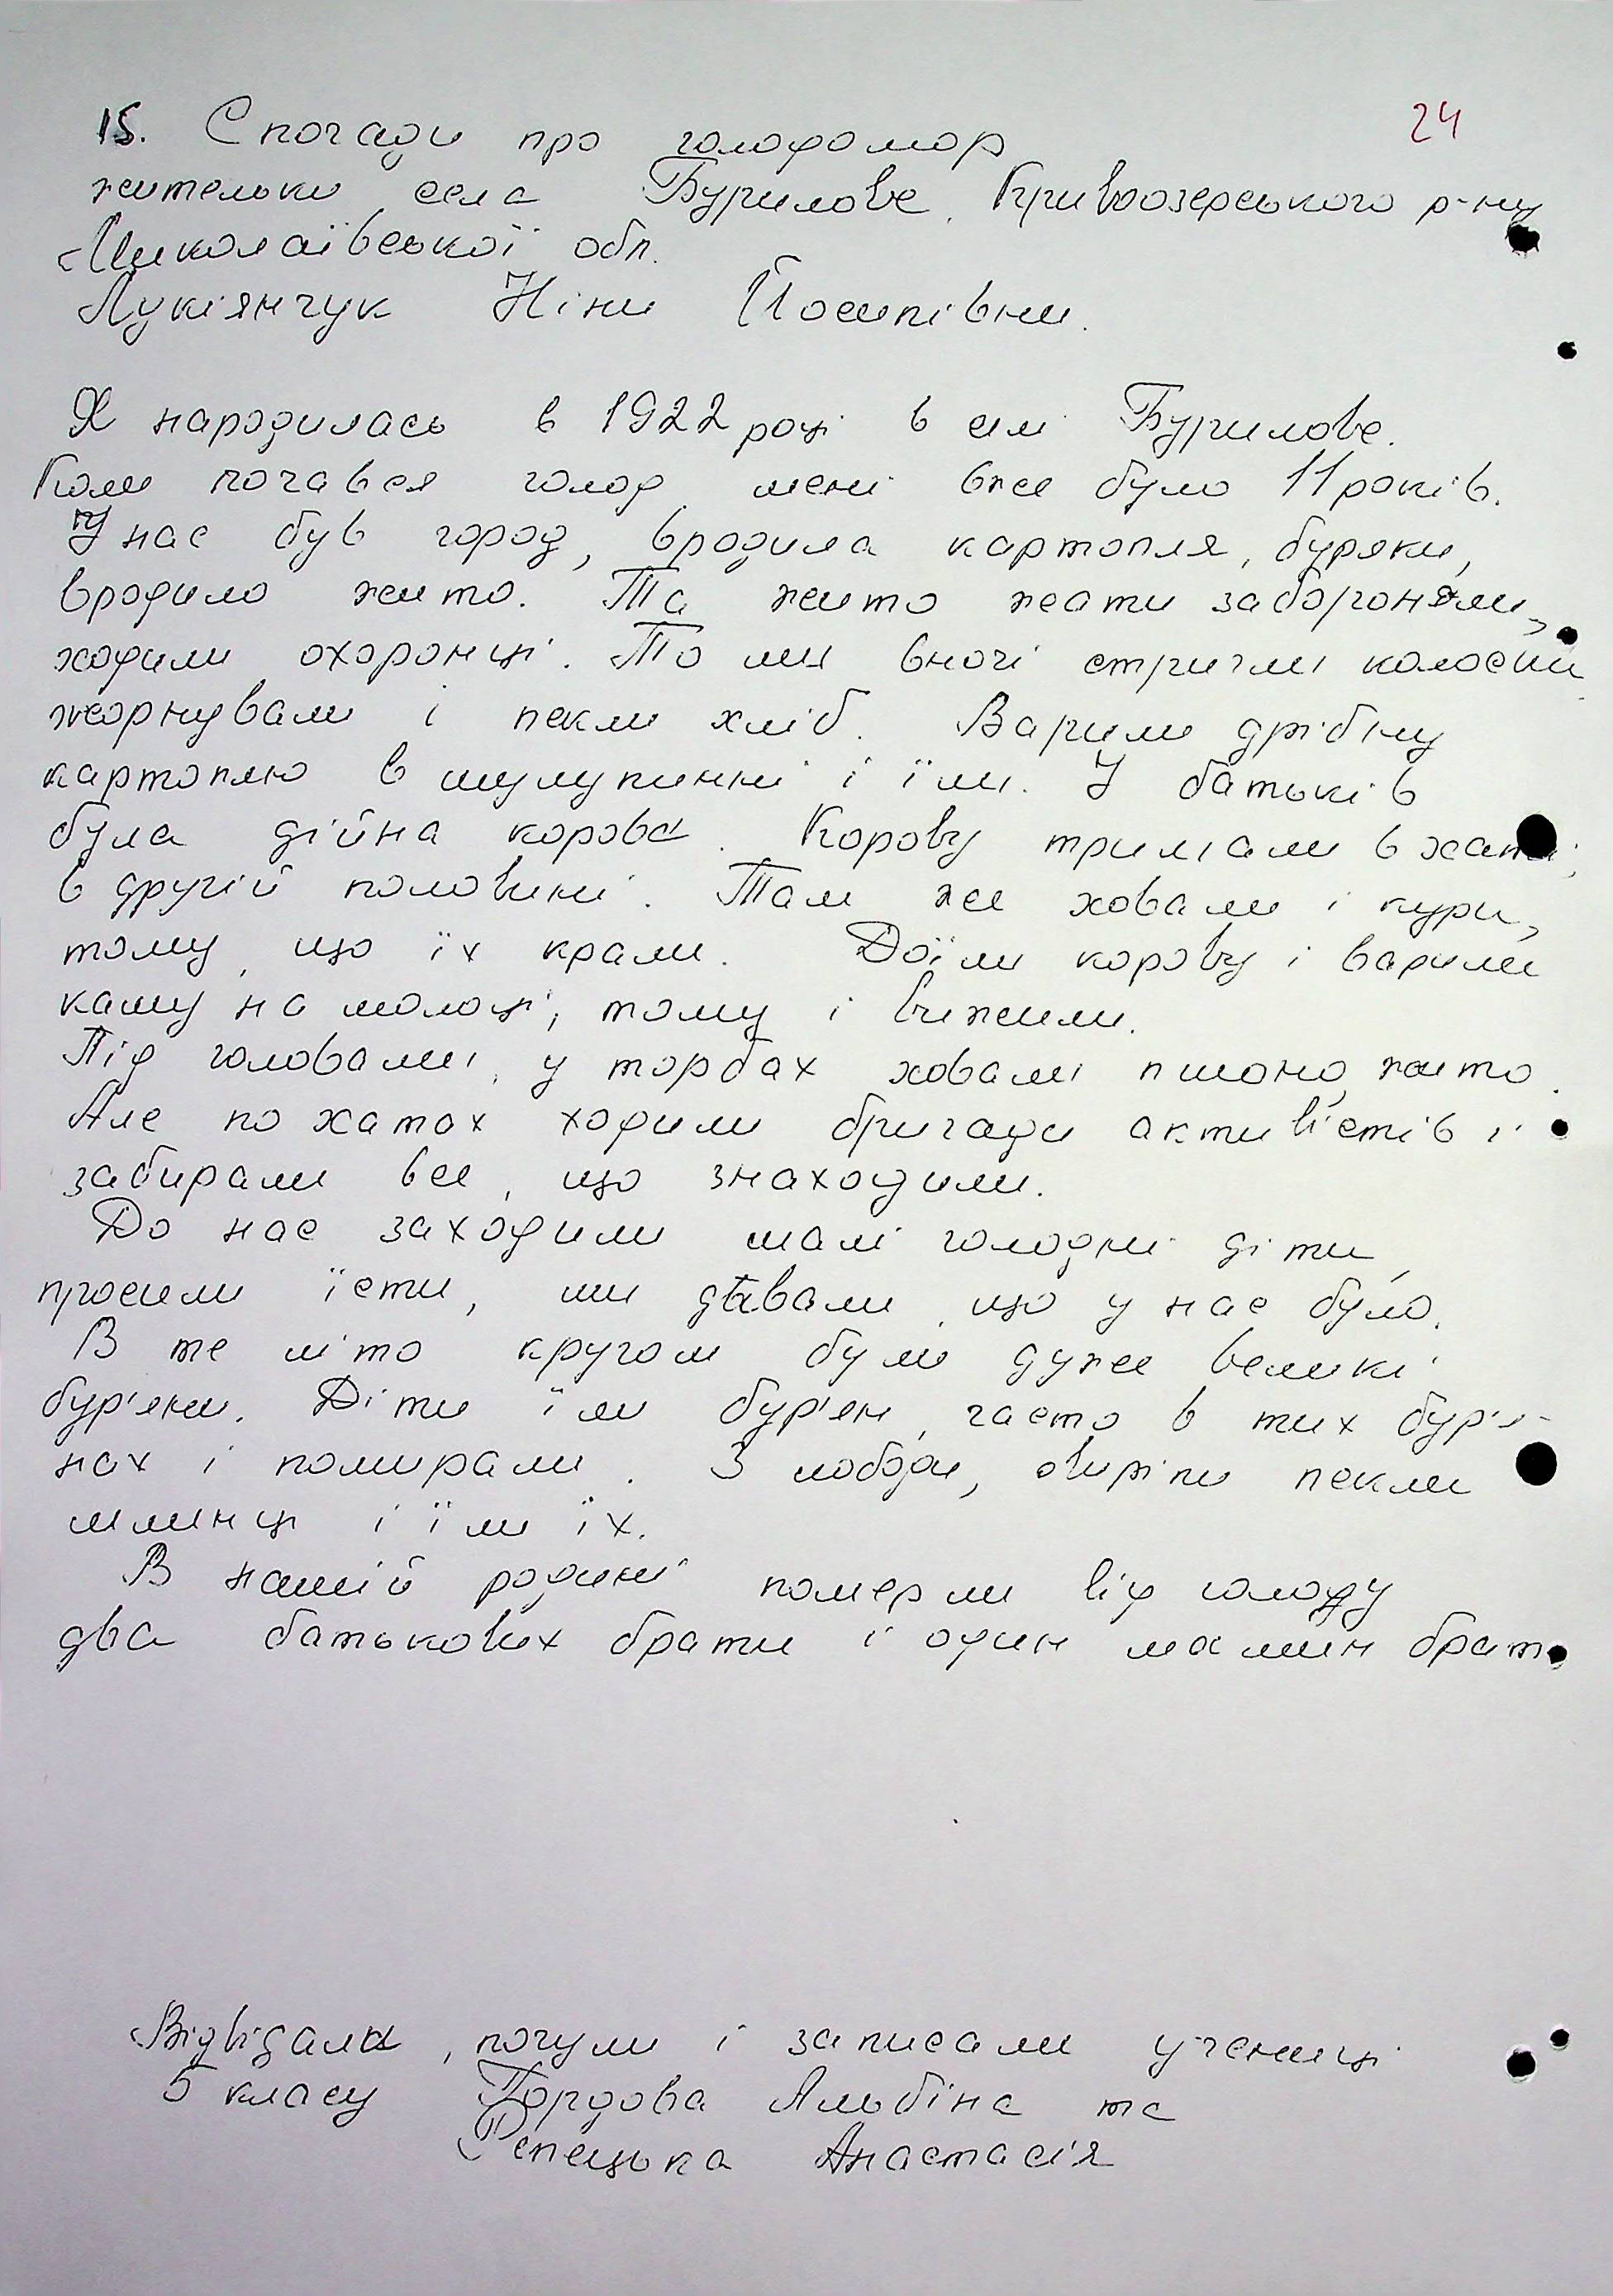 15. Спогади про голодомор
24
жительки села Бурилове, Кривоозерського р-ну
Миколаївської обл.
Лукіянчук Ніни Йосипівни.
Я народилась в 1922 році в с. Бурилове.
Коли почався голод, мені вже було 11 років.
У нас був город, вродила картопля, буряки,
вродило жито. Та жито жати забороняли,
ходили охоронці. То ми вночі стригли колоски
жорнували і пекли хліб. Варили дрібну
картоплю в шулупинні і їли. У батьків
була дійна корова. Корову тримали в хаті,
в другій половині. Там же ховали і кури,
тому, що їх крали. Доїли корову і варили
кашу на молоці, тому і вижили.
Під головами, у торбах ховали пшоно, жито.
Але по хатах ходили бригади активістів і
забирали все, що знаходили.
До нас заходили малі голодні діти,
просили їсти, ми давали, що у нас було.
В те літо кругом були дуже великі
бур'яни. Діти їли бур'ян, часто в тих бур'я-
нах і помирали. З лободи, свиріпи пекли
млинці і їли їх.
В нашій родині померли від голоду
два батькових брати і один мамин брат.
Відвідали, почули і записали учениці
5 класу Гордова Альбіна та
Репецька Анастасія